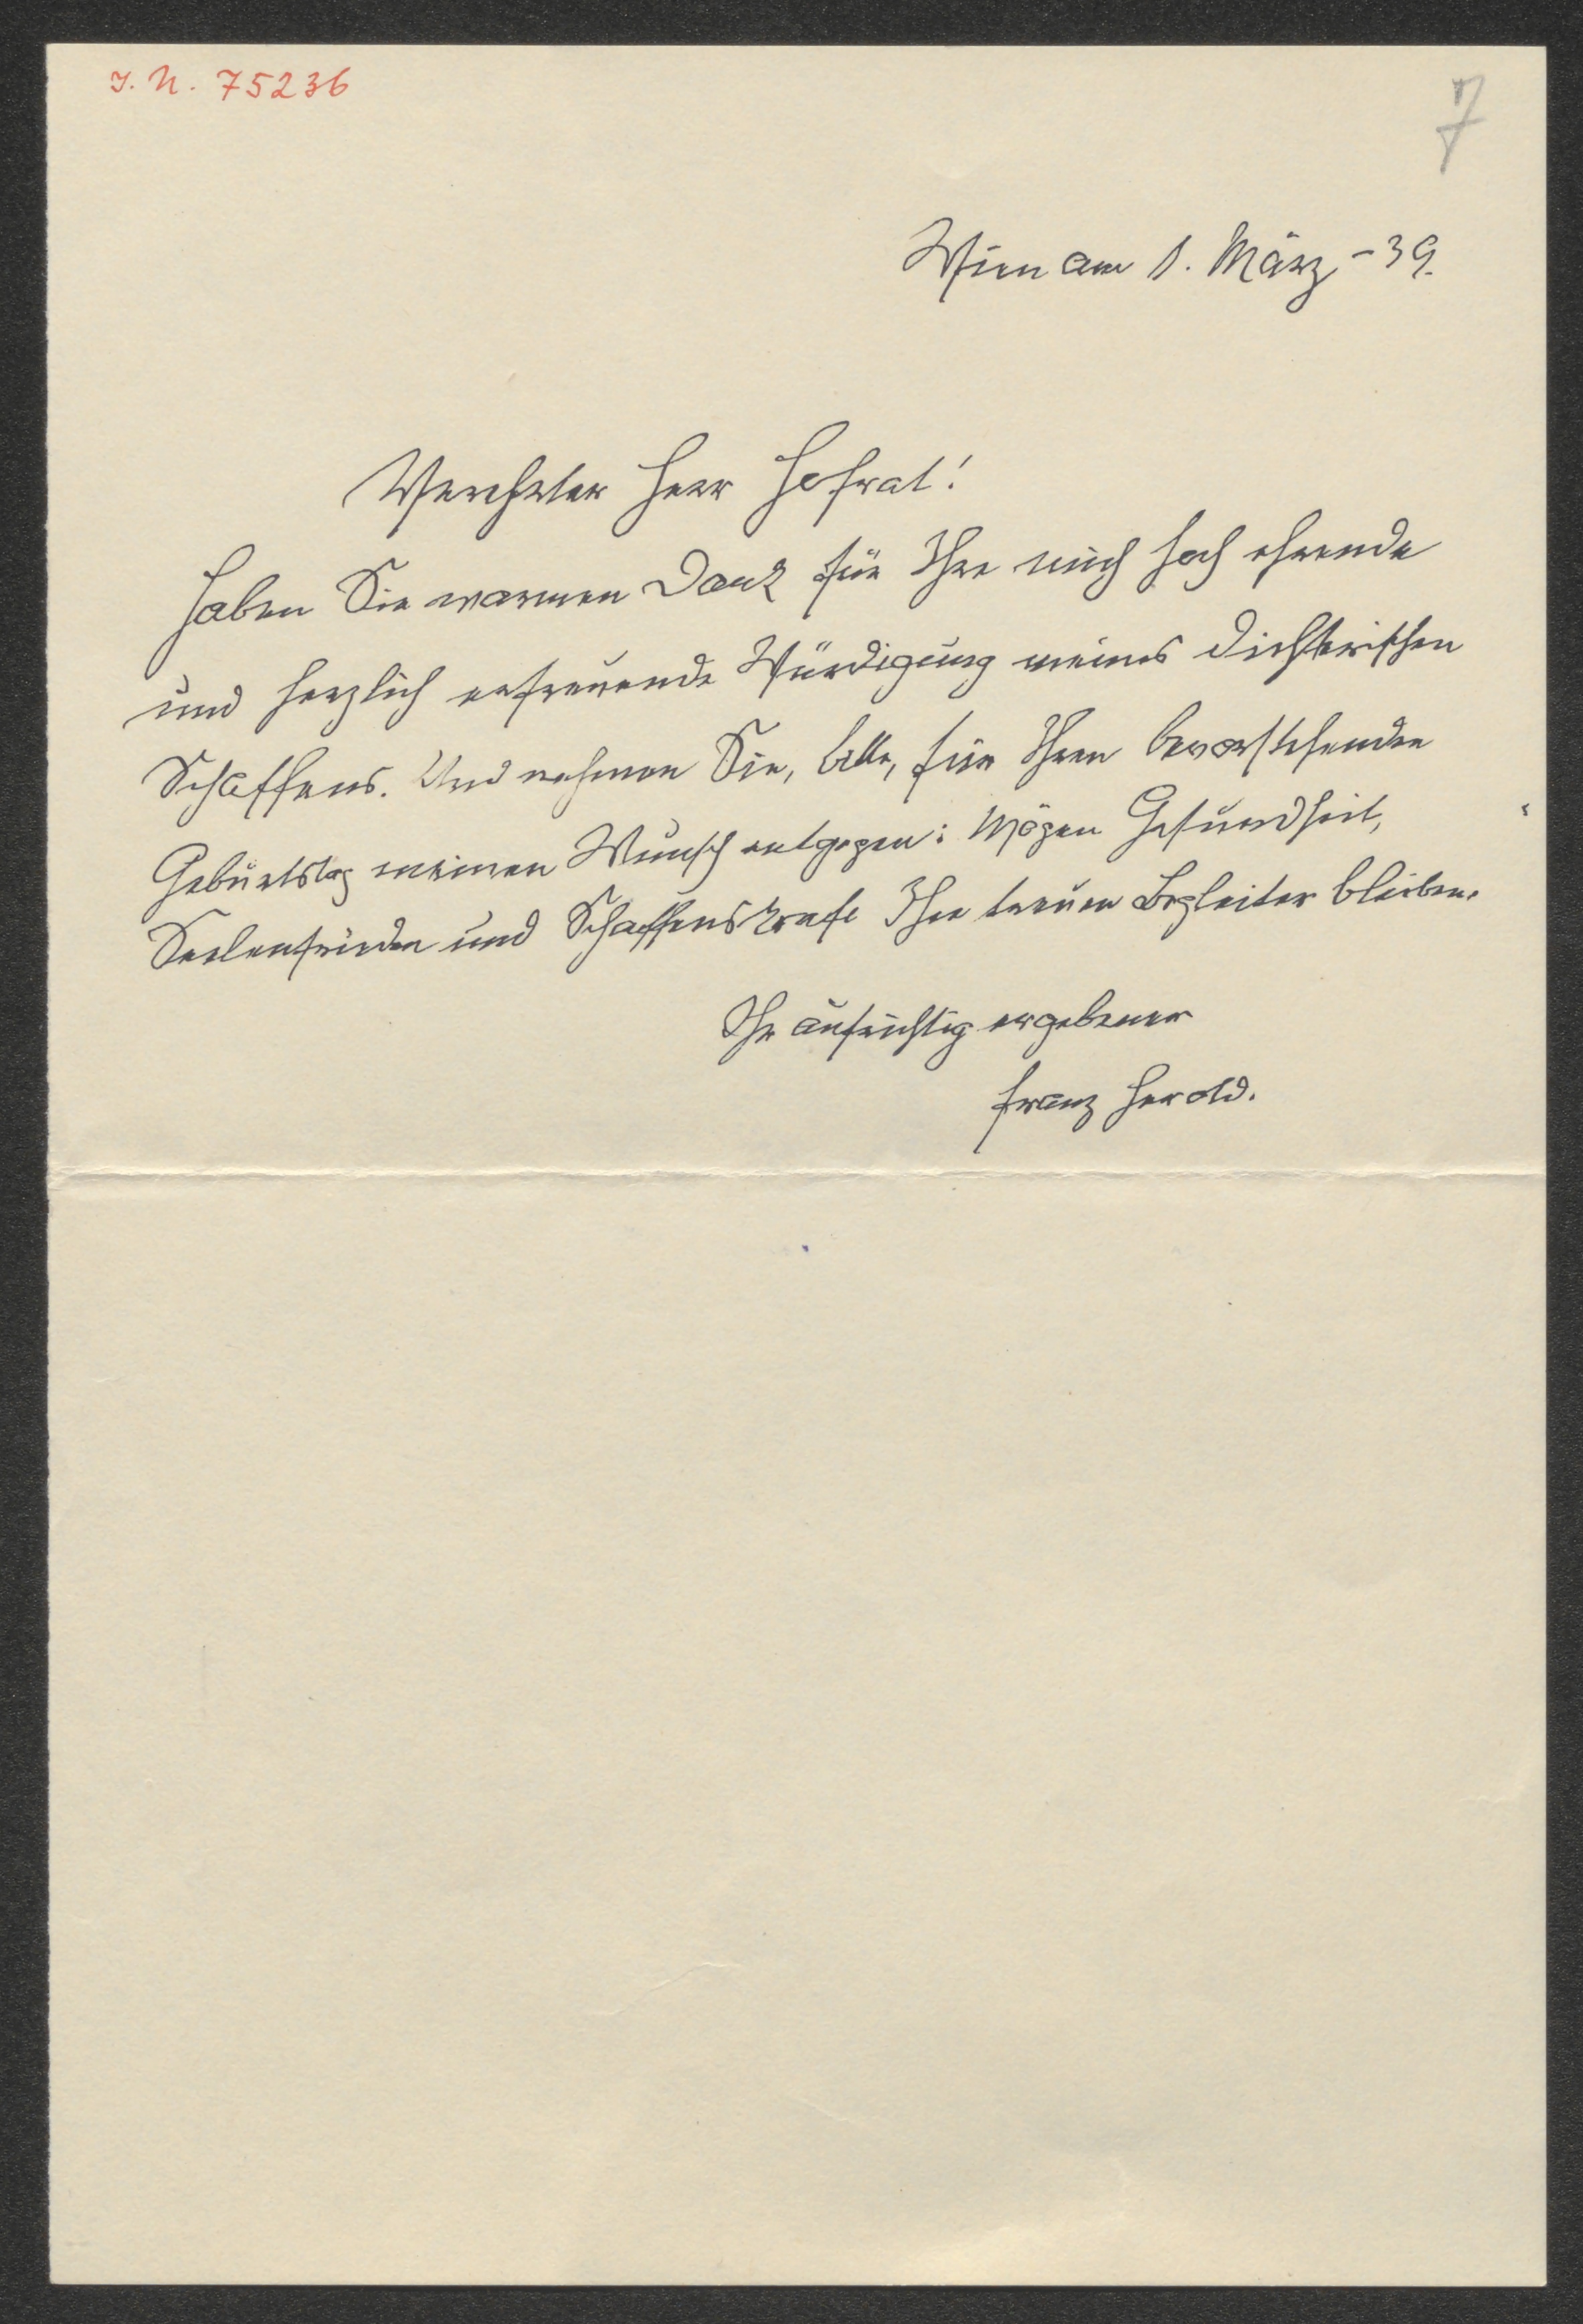 I. N. 75236
7
Wien am 1. März -39.
Verehrter Herr Hofrat!
Haben Sie warmen Dank für Ihre mich hoch ehrende
und herzlich erfreuende Würdigung meines dichterischen
Schaffens. Und nehmen Sie, bitte, für Ihren bevorstehenden
Geburtstag meinen Wunsch entgegen: Mögen Gesundheit,
Seelenfrieden und Schaffenskraft Ihre treuen Begleiter bleiben.
Ihr aufrichtig ergebener
Franz Herold.